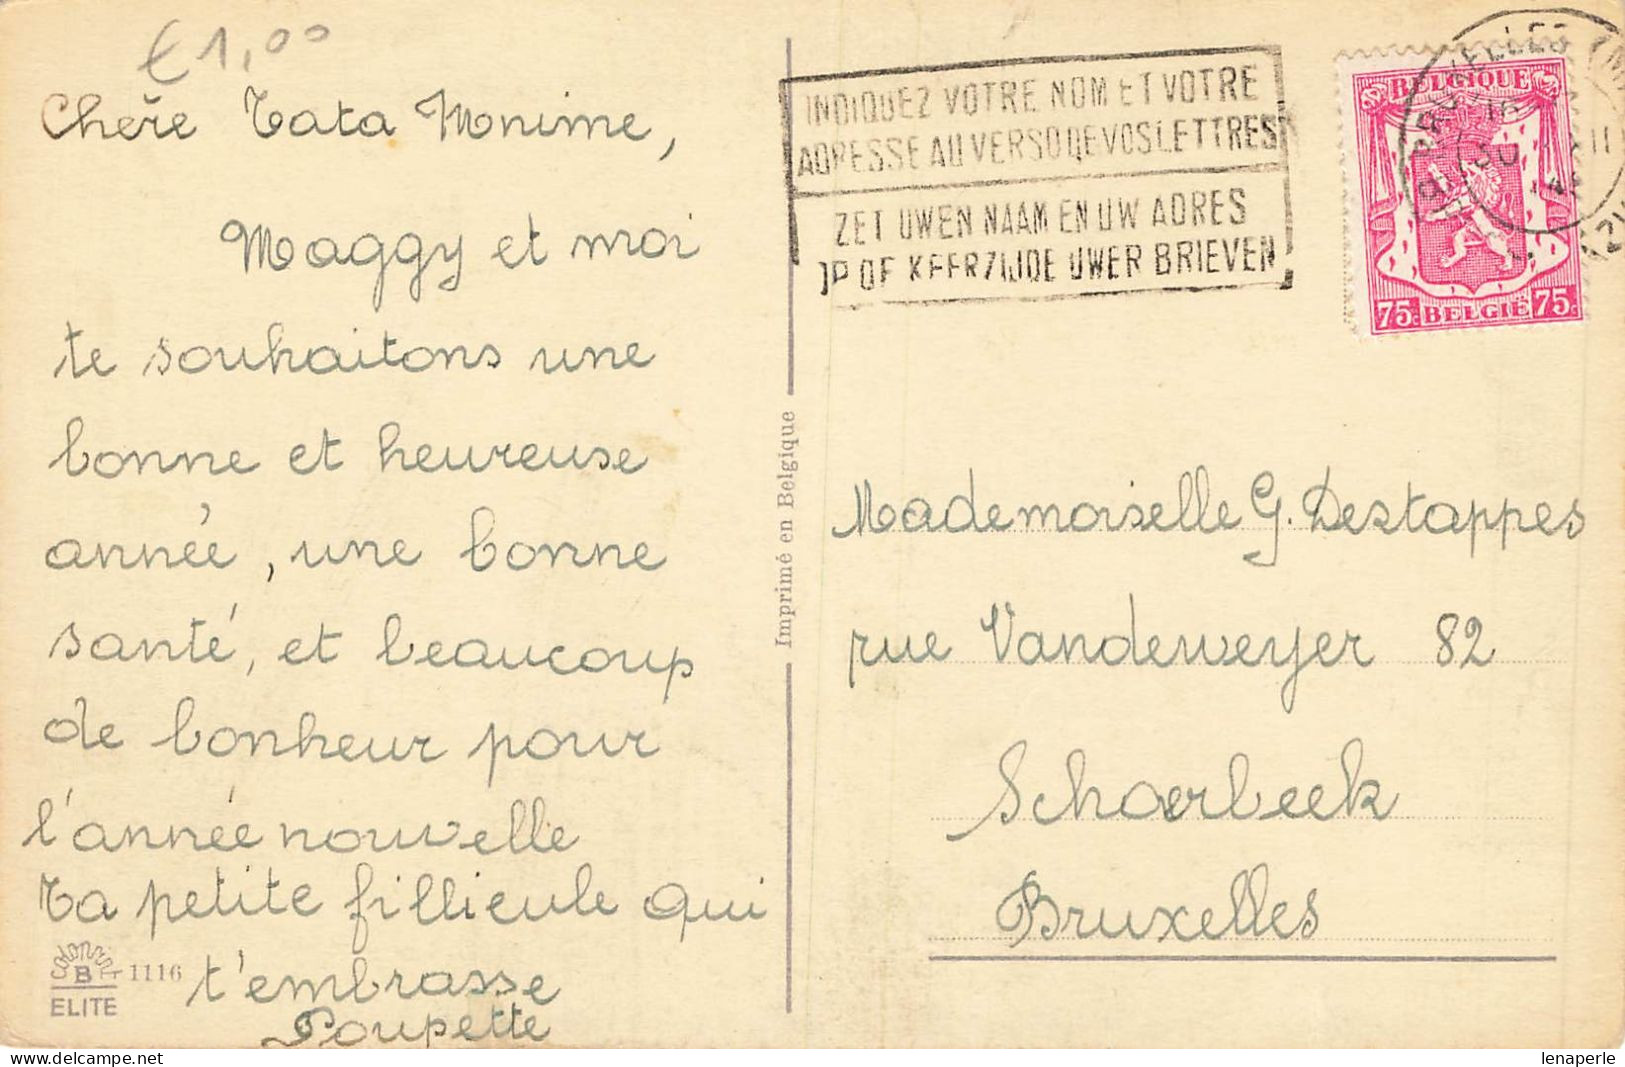 €1,00
Chère Tata Mnime,
Maggy et moi
te souhaitons une
bonne et heureuse
année, une bonne
santé, et beaucoup
de bonheur pour
l'année nouvelle
Ta petite fillieule qui
t'embrasse
Poupette
colorprint
B
ELITE
1116
Imprimé en Belgique
INDIQUEZ VOTRE NOM ET VOTRE
ADRESSE AU VERSO DE VOS LETTRES
ZET UWEN NAAM EN UW ADRES
OP DE KEERZIJDE UWER BRIEVEN
BELGIQUE
75c BELGIË 75c
Mademoiselle G. Destappes
rue Vandeweyer 82
Schaerbeek
Bruxelles
lenaperle